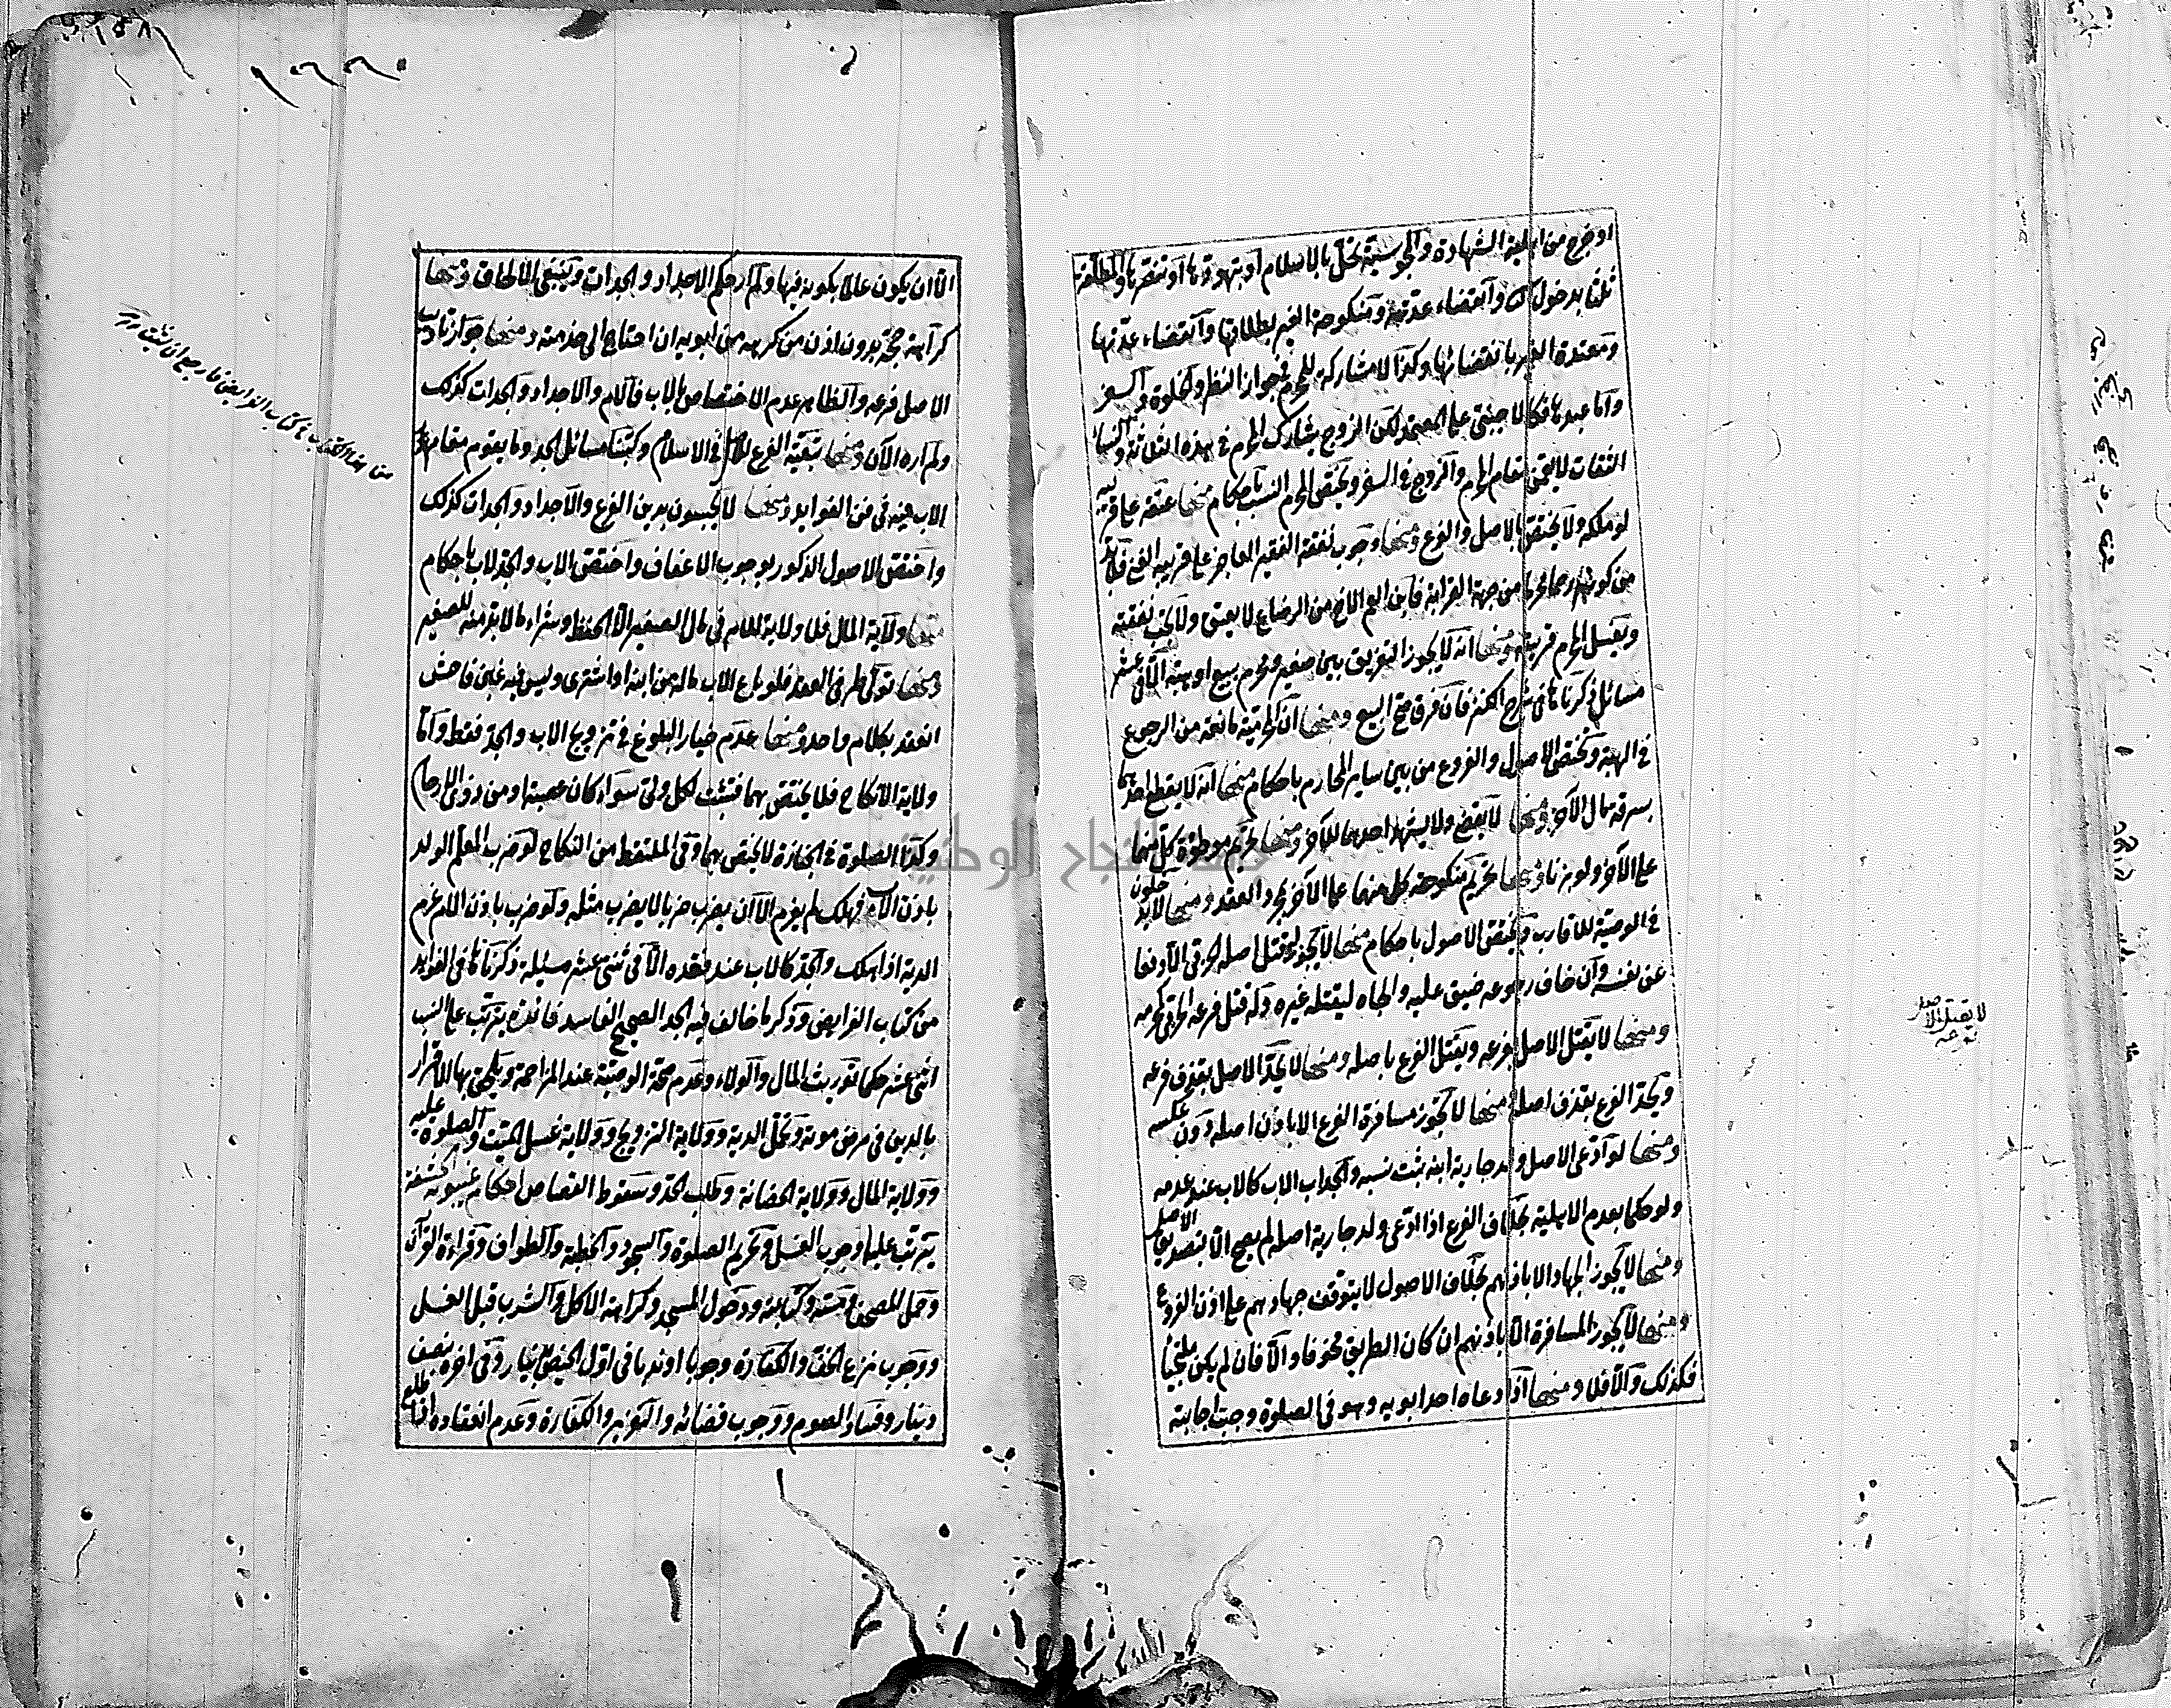 او خرج من اهلية الشهادة والمجوسية تحل بالاسلام او بتهودها او تنصرها والمطلقة
ثلثا بدخول الثاني وانقضاء عدته ومنكوحة الغير بطلاقها وانقضاء عدتها
ومعتدة الغير بانقضائها وكذا لا مشاركة للمحرم في جواز النظر والخلوة والسفر
واما عبدها فكالاجنبي على المعتمد لكن الزوج يشارك المحرم في هذه الثلاثة والنساء
الثقات لا يقمن مقام المحرم والزوج في السفر ويختص المحرم النسب باحكام منها عتقه على قريبه
لو ملكه ولا يختص بالاصل والفرع ومنها وجوب نفقة الفقير العاجز على قريبه الغني فلابد
من كونه رحما محرما من جهة القرابة فابن العم الاخ من الرضاع لا يعتق ولا تجب نفقته
ويغسل المحرم قريبه ومنها انه لا يجوز التفريق بين صغير ومحرم ببيع او هبة الا في عشر
مسائل ذكرناها في شرح الكنز فان فرق صح البيع ومنها ان المحرمية مانعة من الرجوع
في الهبة وتختص الاصول والفروع من بين ساير المحارم باحكام منها انه لا يقطع احدهما
بسرقة مال الآخر ومنها لا يقضي ولا يشهد احدهما للآخر ومنها تحريم موطؤة كل منهما
على الآخر ولو بزنا ومنها تحريم منكوحة كل منهما على الآخر بمجرد العقد ومنها لا يدخلون
في الوصية للاقارب وتختص الاصول باحكام منها لا يجوز له قتل اصله الحربي الا دفعا
عن نفسه وان خاف رجوعه ضيق عليه والجاه ليقتله غيره وله قتل فرعه الحربي كمحرمه
ومنها لا يقتل الاصل بفرعه ويقتل الفرع باصله ومنها لا يحد الاصل بقذف فرعه
ويحد الفرع بقذف اصله ومنها لا تجوز مسافرة الفرع الا باذن اصله دون عكسه
ومنها لو ادعى الاصل ولد جارية ابنه ثبت نسبه والجد اب الاب كالاب عند عدمه
ولو حكما بعدم الاهلية بخلاف الفرع اذا ادعى ولد جارية اصله لم يصح الا بتصديق الاصل
ومنها لا يجوز الجهاد الا باذنهم بخلاف الاصول لا يتوقف جهادهم على اذن الفروع
ومنها لا يجوز المسافرة الا باذنهم ان كان الطريق مخوفا والا فان لم يكن ملتحيا
فكذلك والا فلا ومنها اذا دعاه احد ابويه وهو في الصلوة وجبت اجابته
لا يقتل الاصل
بفرعه
الا ان يكون عالما بكونه فيها ولم ار حكم الاجداد والجدات وينبغي الالحاق ومنها
كراهة حجه بدون اذن من كرهه من ابويه ان احتاج الى خدمته ومنها جواز تاديب
الاصل فرعه والظاهر عدم الاختصاص بالاب فالام والاجداد والجدات كذلك
ولم اره الآن ومنها تبعية الفرع للاصل في الاسلام وكتبنا مسائل الجد وما يقوم مقام
الاب فيه في فن الفوايد ومنها لا يحبسون بدين الفرع والاجداد والجدات كذلك
واختص الاصول الذكور بوجوب الاعفاف واختص الاب والجد لاب باحكام
منها ولاية المال فلا ولاية للام في مال الصغير الا الحفظ وشراء ما لا بد منه للصغير
ومنها تولى طرفي العقد فلو باع الاب ماله من ابنه او اشترى وليس فيه غبن فاحش
انعقد بكلام واحد ومنها عدم خيار البلوغ في تزويج الاب والجد فقط واما
ولاية الانكاح فلا يختص بهما فتثبت لكل ولي سواء كان عصبة او من ذوي الارحام
وكذا الصلوة في الجنازة لا يختص بهما وفي الملتقط من النكاح لو ضرب المعلم الولد
باذن الاب فهلك لم يغرم الا ان يضرب ضربا لا يضرب مثله ولو ضرب باذن الام غرم
الدية اذا هلك والجد كالاب عند فقده الا في ثنتي عشر مسئلة ذكرناها في الفوايد
من كتاب الفرايض وذكرنا ما خالف فيه الجد الصحيح الفاسد فائدة يترتب على النسب
اثنى عشر حكما توريث المال والولاء وعدم صحة الوصية عند المزاحمة ويلحق بها الاقرار
بالدين في مرض موته وتحمل الدية وولاية التزويج وولاية غسل الميت والصلوة عليه
وولاية المال وولاية الحضانة وطلب الحد وسقوط القصاص احكام غيبوبة الحشفة
يترتب عليها وجوب الغسل وتحريم الصلوة والسجود والخطبة والطواف وقراءة القرآن
وحمل المصحف ومسه وكتابته ودخول المسجد وكراهة الاكل والشرب قبل الغسل
ووجوب نزع الخف والكفارة وجوبا او ندبا في اول الحيض بدينار وفي اخره بنصف
دينار وفساد الصوم ووجوب قضائه والتعزير والكفارة وعدم انعقاده اذا طلع